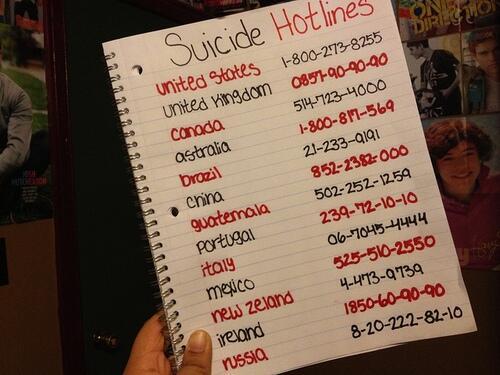 Suicide Hotlines
united states 1-800-273-8255
united kingdom 0857-90-90-90
canada 514-723-4000
astralia 1-800-817-569
brazil 21-233-9191
china 852-2382-000
guatemala 502-252-1259
portugal 239-72-10-10
italy 06-7045-4444
mexico 525-510-2550
new zeland 4-473-9739
ireland 1850-60-90-90
russia 8-20-222-82-10
ONE
DIRECTION
JOSH
HUTCHERSON